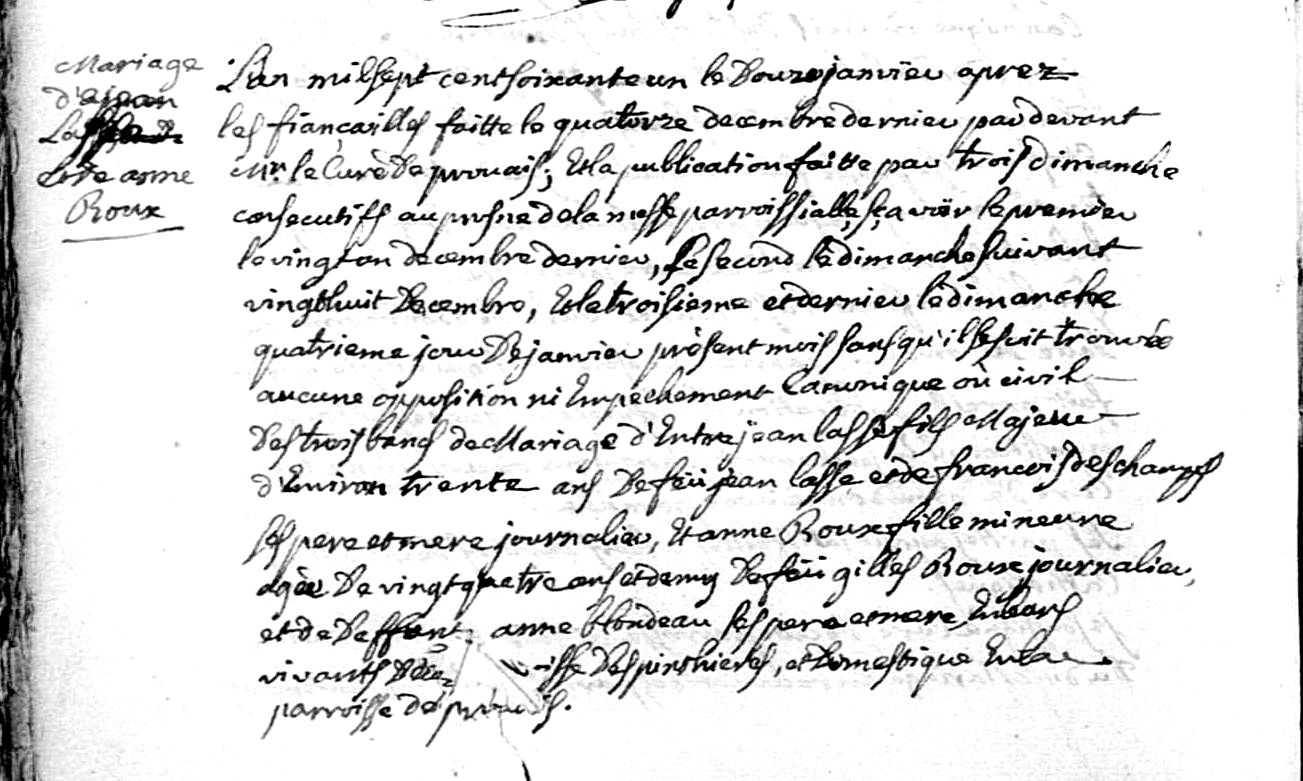 Mariage
d'e jean
Lasse
Et de anne
Roux
L'an mil sept cent soixante un le Douze janvier aprez
les fiançailles faitte le quatorze decembre dernier par devant
Mr. le Curé De prouais; Et la publication faitte par trois dimanche
consecutifs au prosne de la messe parroissialle, sçavoir le premier
le vingt un decembre dernier, le second le dimanche suivant
vingt huit Decembre, Et le troisieme et dernier le dimanche
quatrieme jour De janvier présent mois sans qu'il se soit trouvée
aucune opposition ni Empechement Canonique où civil
Des trois bancs de Mariage d'Entre jean lasse fils Majeur
d'Environ trente ans De feü jean lasse et de francois deschamps
ses pere et mere journalier, Et anne Roux fille mineure
agée De vingt quatre ans et demy De feü gilles Roux journalier,
et de Deffunt anne blondeau ses pere et mere, Eux
vivants De Despinthieres, et Domestique En la
parroisse de prouais.